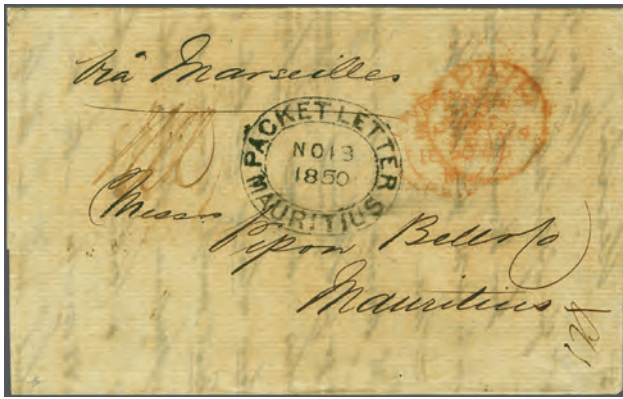 Via Marseilles
PACKET LETTER
NO 13
1850
MAURITIUS
PAID
Messrs
Pipon Bell & Co
Mauritius